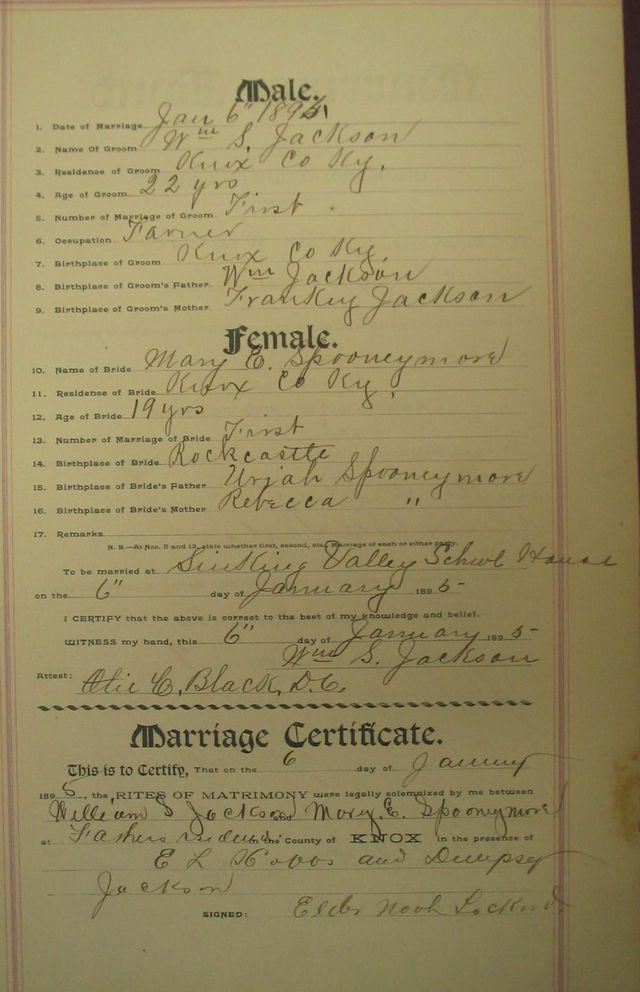 Male.
1. Date of Marriage Jan 6" 1895
2. Name Of Groom Wm S. Jackson
3. Residence of Groom Knox Co Ky.
4. Age of Groom 22 yrs
5. Number of Marriage of Groom First.
6. Occupation Farmer
7. Birthplace of Groom Knox Co Ky.
8. Birthplace of Groom's Father Wm Jackson
9. Birthplace of Groom's Mother Frankey Jackson
Female.
10. Name of Bride Mary E. Spooneymore
11. Residence of Bride Knox Co Ky.
12. Age of Bride 19 yrs
13. Number of Marriage of Bride First
14. Birthplace of Bride Rockcastle
15. Birthplace of Bride's Father Uriah Spooneymore
16. Birthplace of Bride's Mother Rebecca "
17. Remarks
N. B.—At Nos. 5 and 13, state whether first, second, etc., marriage of each or either party.
To be married at Sinking Valley School House
on the 6" day of January 1895-
I CERTIFY that the above is correct to the best of my knowledge and belief.
WITNESS my hand, this 6" day of January 1895-
Wm S. Jackson
Attest: C. Black, D.C.
Marriage Certificate.
This is to Certify, That on the 6 day of January
1895, the RITES OF MATRIMONY were legally solemnized by me between
William S Jackson and Mary E. Spooneymore
at Fathers in the County of KNOX in the presence of
E L Hobbs and Dempsey
Jackson
SIGNED: Elder Noah